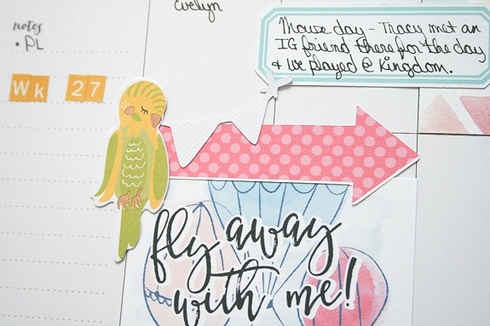 Evelyn
notes
• PL
Wk 27
Mouse day - Tracy met an
IG friend there for the day
& we played @ Kingdom.
fly away
with me!